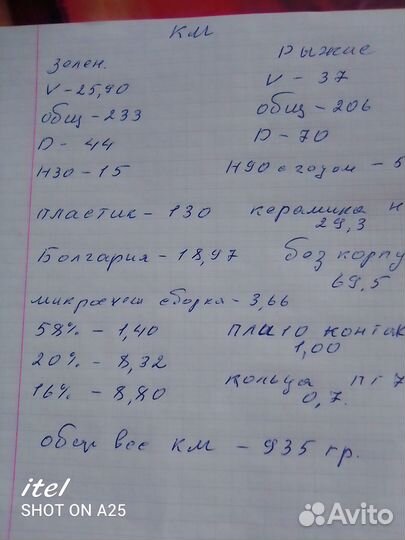 КМ
зелен.
V - 25,90
общ - 233
D - 44
Н30 - 15
пластик - 130
Болгария - 18,97
микросхем сборка - 3,66
58% - 1,40
20% - 8,32
16% - 8,80
рыжие
V - 37
общ - 206
D - 70
Н90 с годом - 5
керамика Н
29,3
без корпу
69,5
плато контак
1,00
кольца пг 7
0,7.
общ вес КМ - 935 гр.
itel
SHOT ON A25
Avito